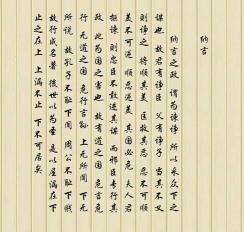 纳言
纳言之政 谓为谏诤 所以采众下之
谋也 故君有诤臣 父有诤子 当其不义
则诤之 将顺其美 匡救其恶 恶不可顺
美不可逆 顺恶逆美 其国必危 夫人君
拒谏 则忠臣不敢进其谋 而邪臣专行其
政 此为国之害也 故有道之国 危言危
行 无道之国 危行言孙 上无所闻 下无
所说 故孔子不耻下问 周公不耻下贱
故行成名著 后世以为圣 是以屋漏在下
止之在上 上漏不止 下不可居矣